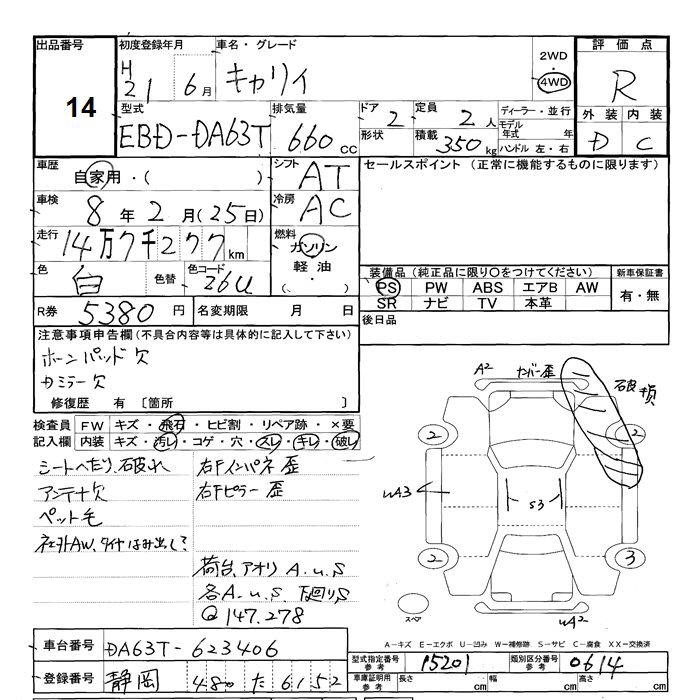 出品番号 初度登録年月 車名・グレード 2WD 評価点
14 H21 6月 キャリイ 4WD R
型式 排気量 ドア 定員 ディーラー・並行 外装 内装
EBD-DA63T 660cc 2 2人 モデル年式 年 D C
形状 積載 350kg ハンドル 左・右
車歴 自家用・( ) シフト AT セールスポイント (正常に機能するものに限ります)
車検 8年2月(25日) 冷房 AC
走行 14万7千277km 燃料 ガソリン
色 白 色替 色コード 26U 軽油 ( )
装備品 (純正品に限り○をつけてください) 新車保証書
PS PW ABS エアB AW 有・無
SR ナビ TV 本革
R券 5380円 名変期限 月 日 後日品
注意事項申告欄 (不具合内容等は具体的に記入して下さい)
ホーンパッド欠
カミラー欠
修復歴 有 〔箇所 〕
検査員 FW キズ・飛石・ヒビ割・リペア跡・×要
記入欄 内装 キズ・汚レ・コゲ・穴・スレ・キレ・破レ
シートへたり、破れ
アンテナ欠
ペット毛
社外AW、タイヤはみ出し?
右Fインパネ歪
右Fピラー歪
荷台、アオリ A.U.S
各A.U.S 下廻りS
@147.278
A2 カバー歪 破損
2 2
UA3 S3
2 3
スペア UA2
A-キズ E-エクボ U-凹み W-補修跡 S-サビ C-腐食 XX-交換済
車台番号 DA63T-623406
登録番号 静岡 480 た 6152
型式指定番号 参考 15201 類別区分番号 参考 0614
車庫証明用 参考 長さ cm 幅 cm 高さ cm